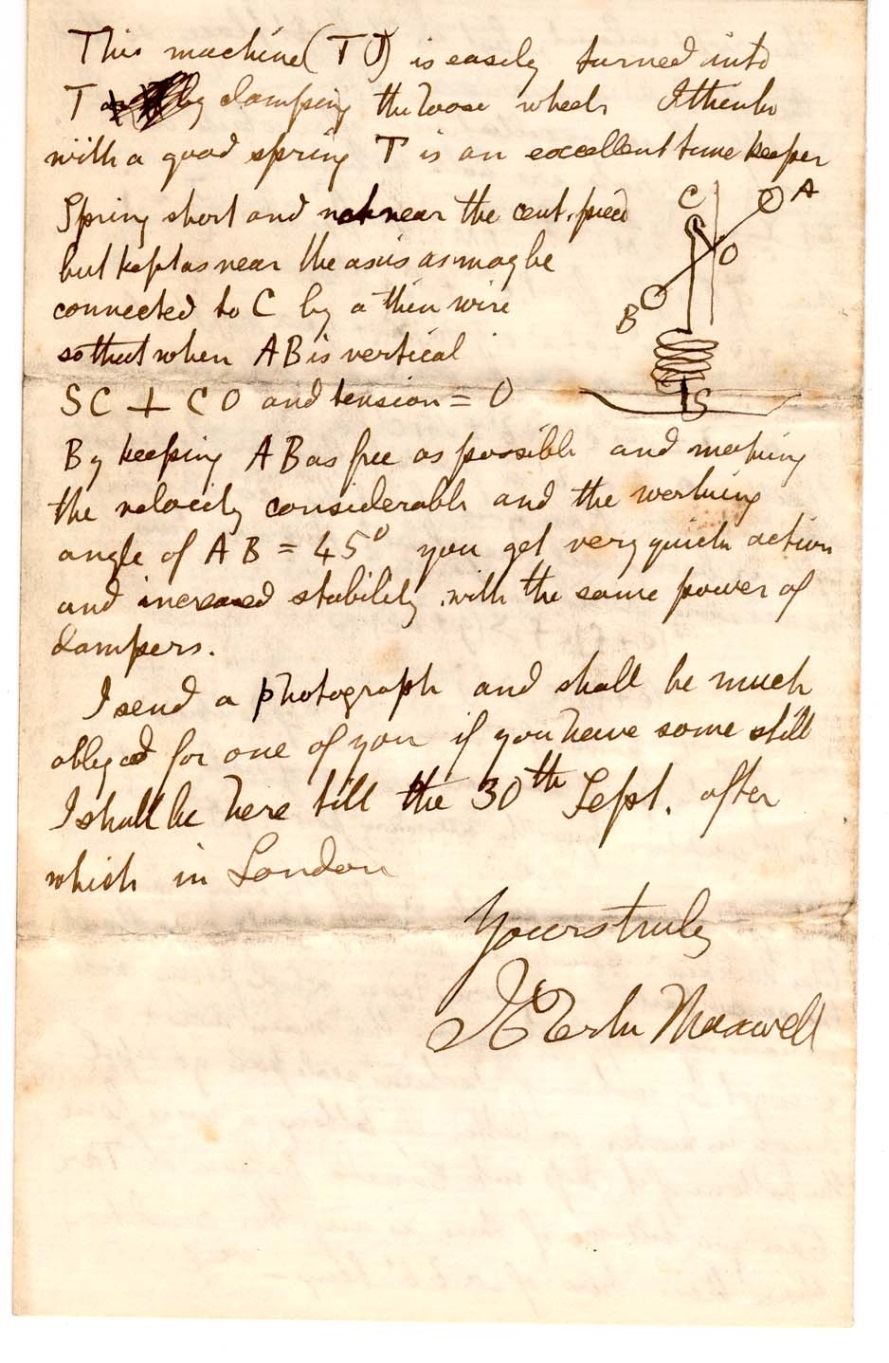 This machine (TJ) is easily turned into
T by clamping the loose wheel I think
with a good spring T is an excellent time keeper
Spring short and not near the cent. piece
but kept as near the axis as may be
connected to C by a thin wire
so that when AB is vertical
SC ⊥ CO and tension = 0
C
A
O
B
S
By keeping AB as free as possible and making
the velocity considerable and the working
angle of AB = 45° you get very quick action
and increased stability with the same power of
dampers.
I send a photograph and shall be much
obliged for one of you if you have some still
I shall be here till the 30th Sept. after
which in London
Yours truly
J Clerk Maxwell